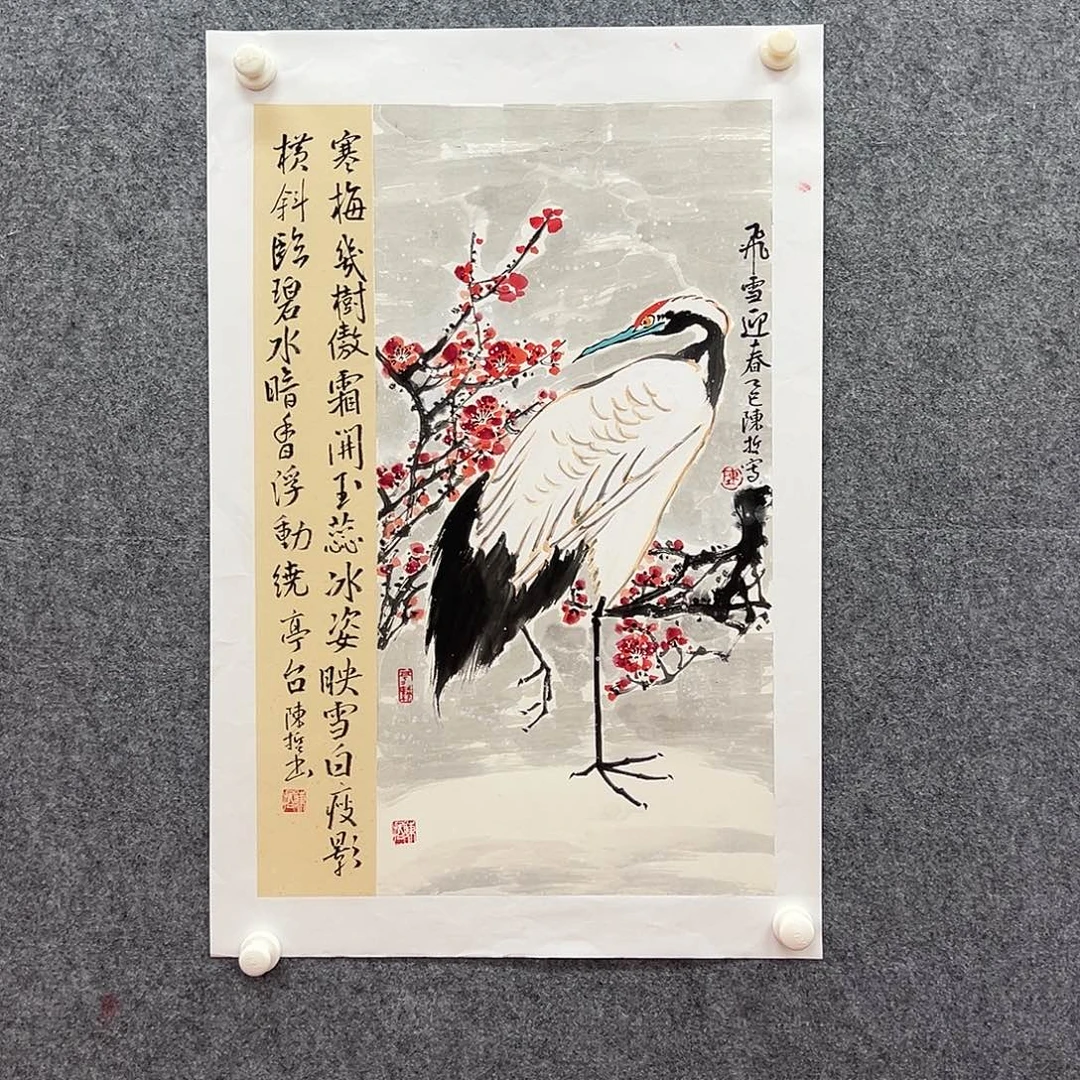 飛雪迎春乙巳陳哲寫
寒梅幾樹傲霜開玉蕊冰姿映雪白瘦影
橫斜臨碧水暗香浮動繞亭台陳哲书